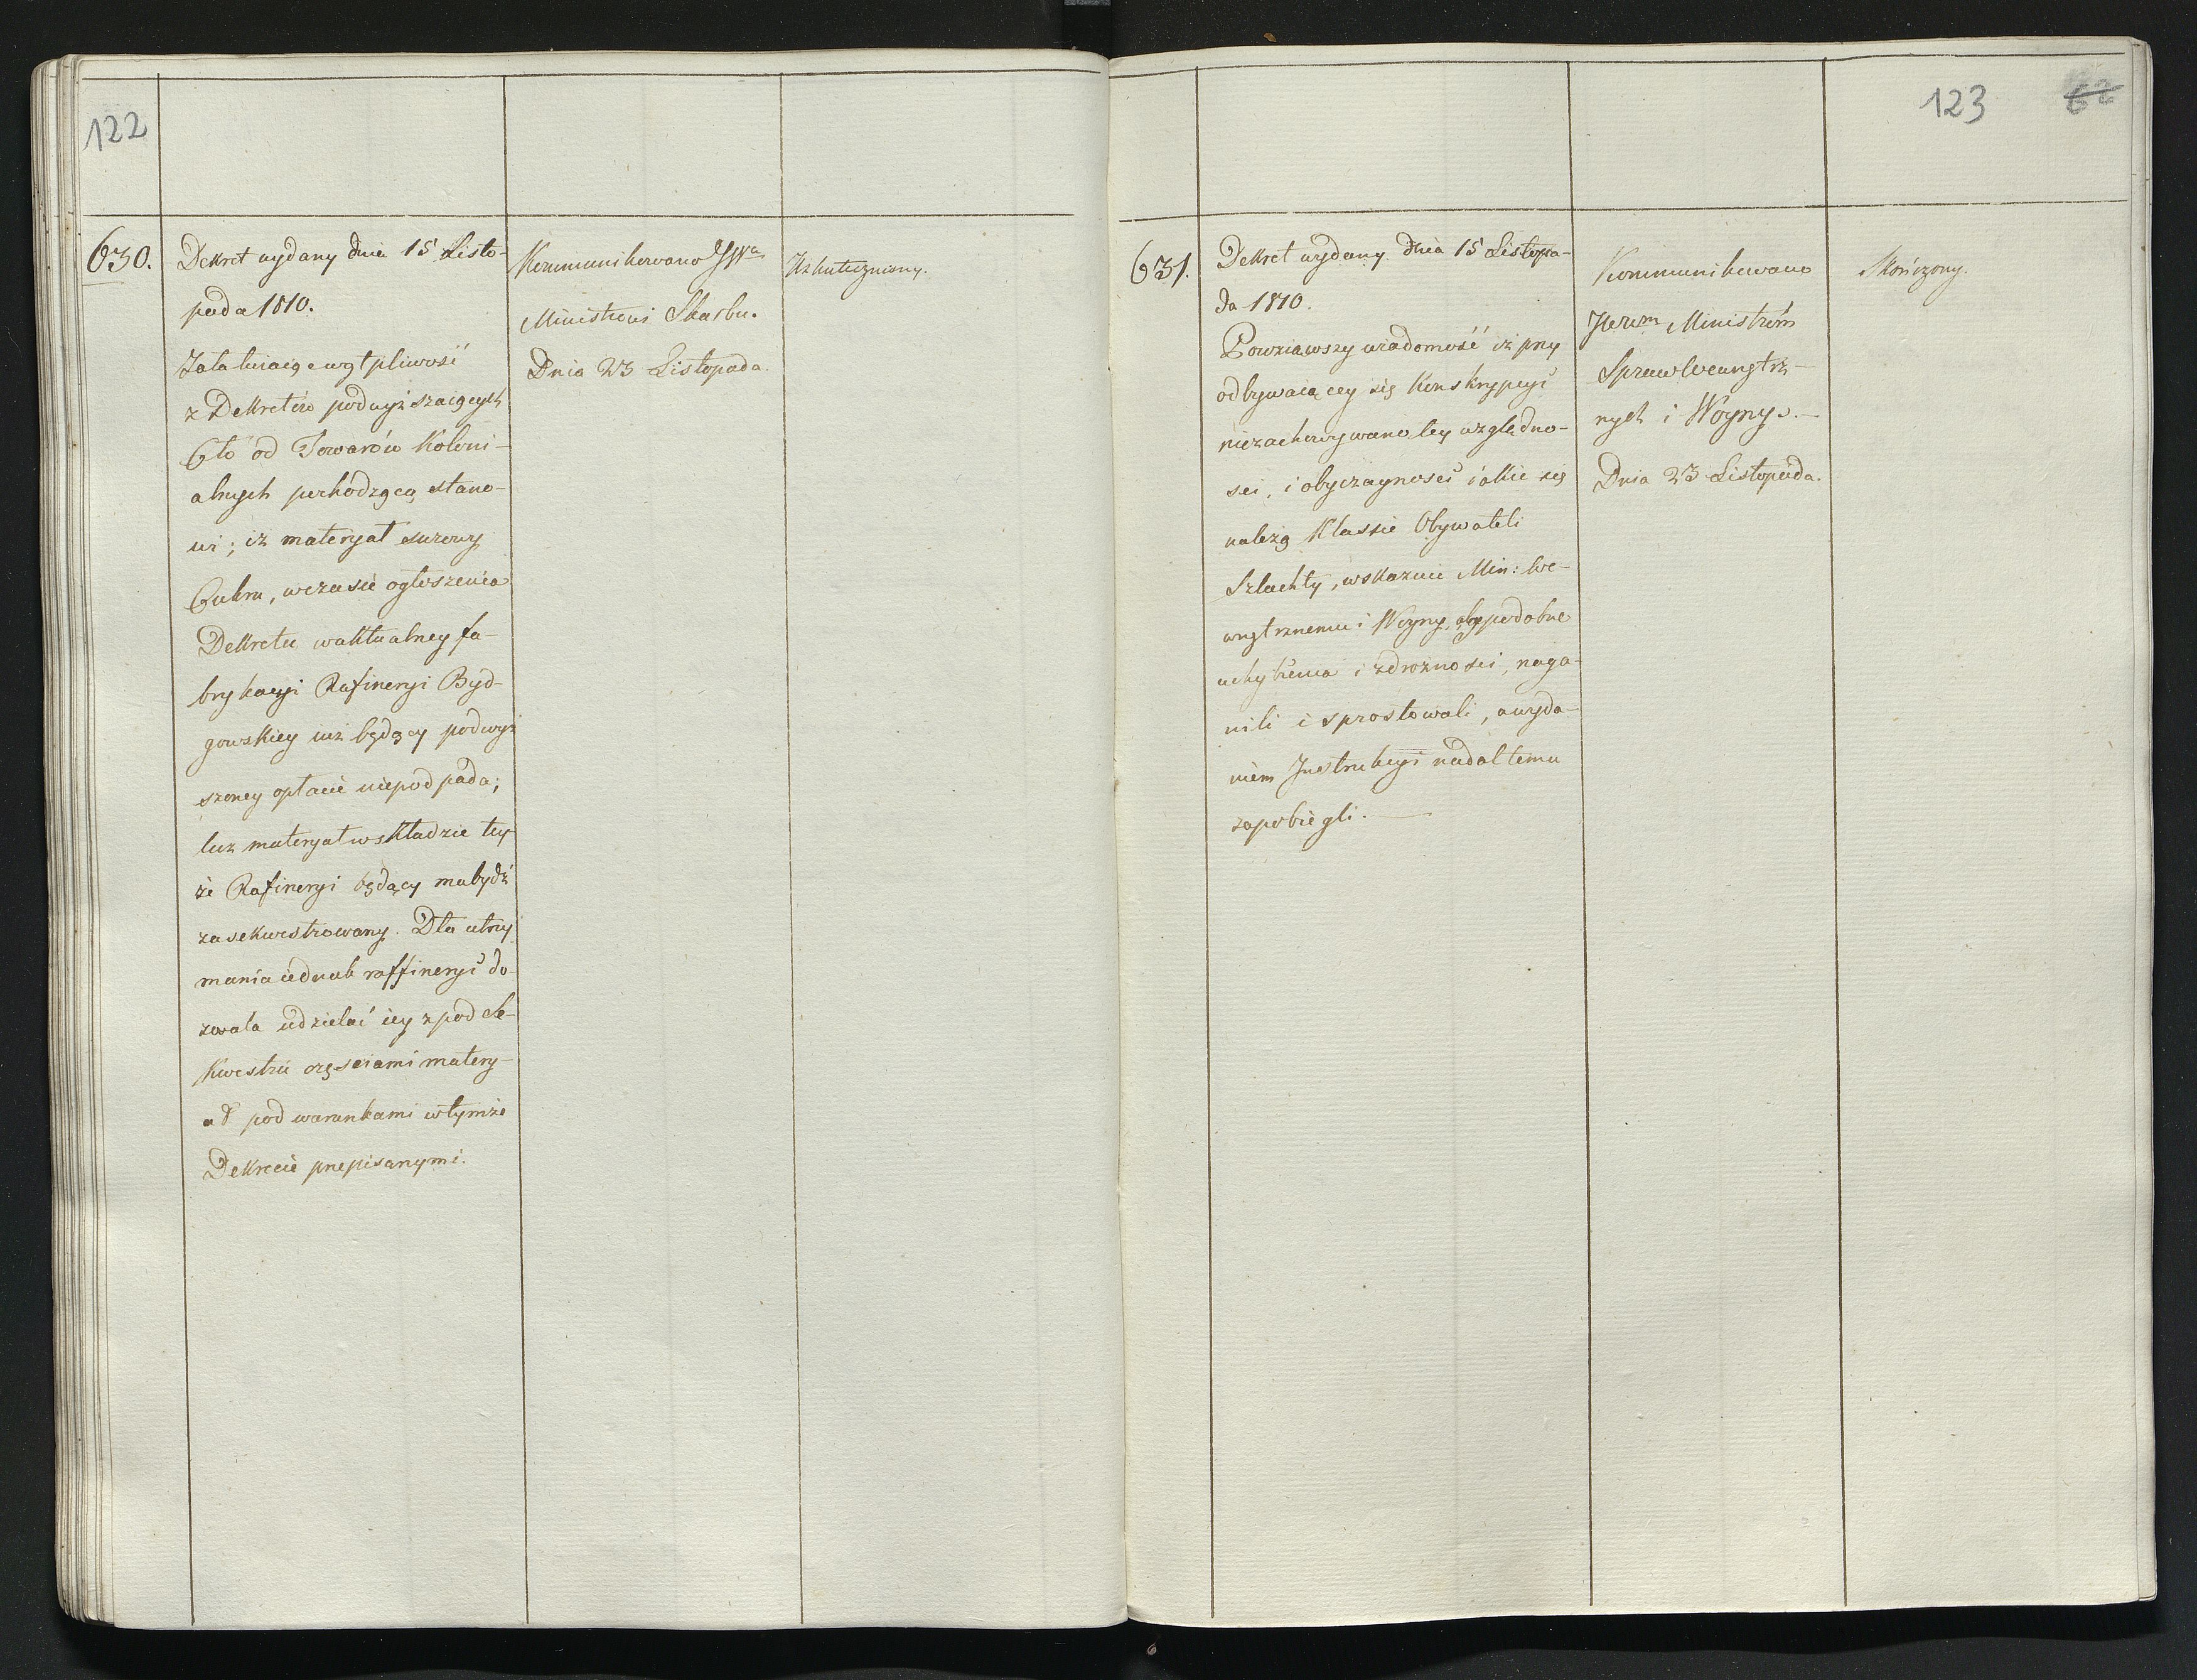 122
630.
Dekret wydany dnia 15 Listo-
pada 1810.
Załatwiaiąc wątpliwość
z Dekretów podwyższaiących
Cło od Towarów Koloni-
alnych pochodzącą stano-
wi; iż materyał surowy
Cukru, wczasie ogłoszenia
Dekretu waktualney fa-
brykacyi Rafineryi Byd-
gowskiey iuż będący podwyż
szoney opłacie niepodpada;
lecz materyał wskładzie tey-
że Rafineryi będący mabydź
zasekwestrowany. Dla utrzy
mania iednak raffineryi do-
zwala udzielać iey zpod Se-
kwestru częściami matery-
ał pod warunkami wtymże
Dekrecie przepisanymi.
Kommunikowano
Ministrowi Skarbu.
Dnia 23 Listopada.
Uskuteczniony.
123 62
631.
Dekret wydany dnia 15 Listopa-
da 1810.
Powziąwszy wiadomość iż przy
odbywaiącey się Konskrypcyi
niezachowywano tey względno-
sci, i obyczayności iakie się
należą Klassie Obywateli
Szlachty, wskazuie Min: We-
wnętrznemu i Woyny, aby podobne
uchybienia i zdrożności, naga-
nili i sprostowali, a wyda-
niem Instrukcyi nadal temu
zapobiegli.
Kommunikowano
Ministróm
Spraw Wewnętrz-
nych i Woyny.
Dnia 23 Listopada.
Skończony.